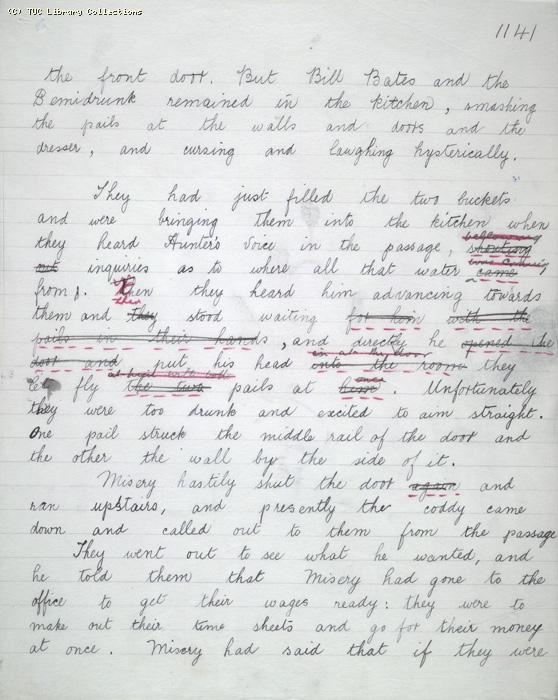 (C) TUC Library Collections
1141
the front door. But Bill Bates and the
Bemidrunk remained in the kitchen, smashing
the pails at the walls and doors and the
dresser, and cursing and laughing hysterically.
They had just filled the two buckets
and were bringing them into the kitchen when
bellowing
they heard Hunter's voice in the passage, shouting
was coming
out inquiries as to where all that water came
from. Then they heard him advancing towards
then
them and they stood waiting for him with the
pails in their hands, and directly he opened the
in at the door
door and put his head into the room they
at
let fly the two pails at him. Unfortunately
once
they were too drunk and excited to aim straight.
One pail struck the middle rail of the door and
the other the wall by the side of it.
Misery hastily shut the door again and
ran upstairs, and presently the coddy came
down and called out to them from the passage
They went out to see what he wanted, and
he told them that Misery had gone to the
office to get their wages ready: they were to
make out their time sheets and go for their money
at once. Misery had said that if they were